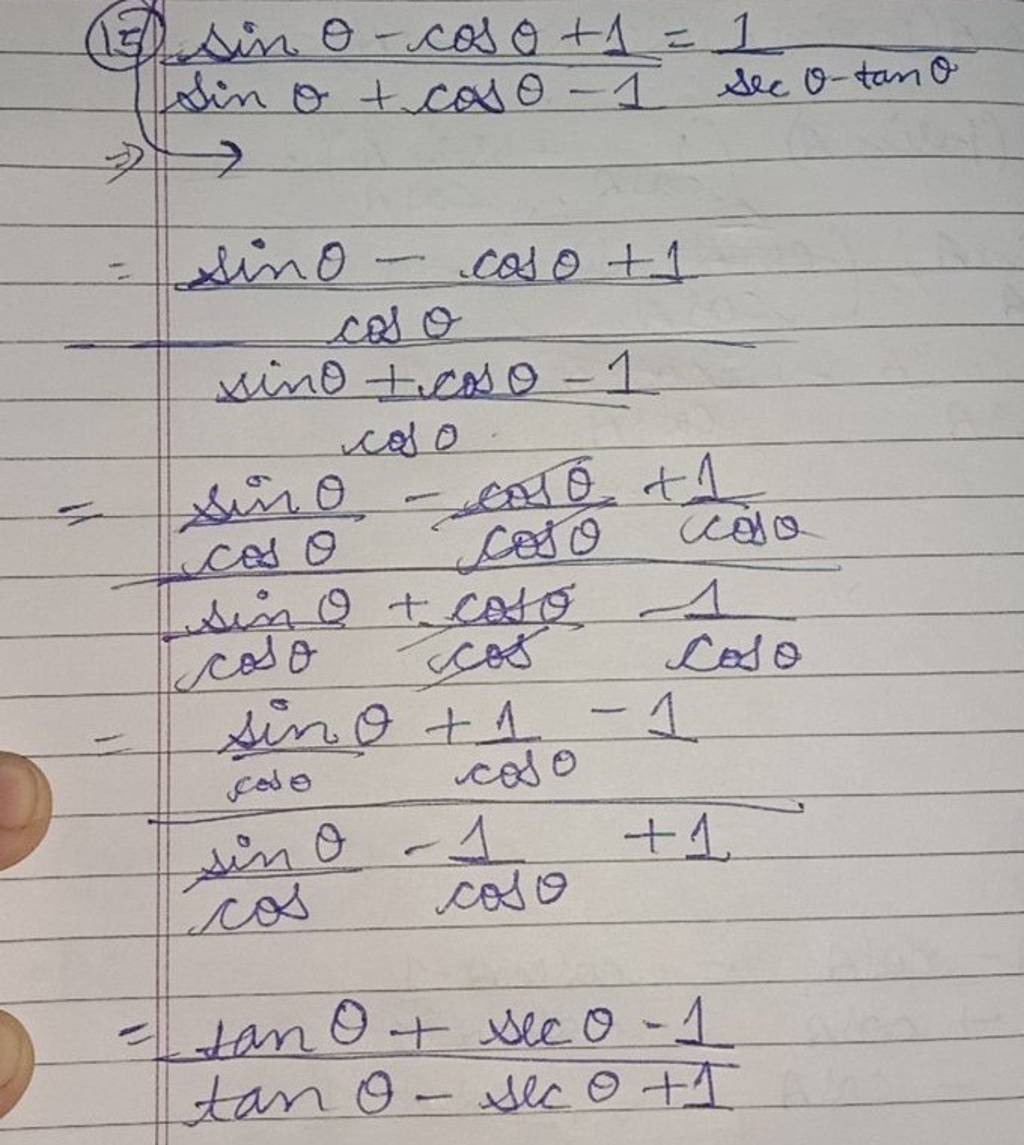 15 sin θ - cos θ + 1 = 1
sin θ + cos θ - 1 sec θ - tan θ
⇒ →
= sin θ - cos θ + 1
cos θ
sin θ + cos θ - 1
cos θ
= sin θ - cos θ + 1
cos θ cos θ cos θ
sin θ + cos θ - 1
cos θ cos cos θ
= sin θ + 1 - 1
cos θ cos θ
sin θ - 1 + 1
cos cos θ
= tan θ + sec θ - 1
tan θ - sec θ + 1